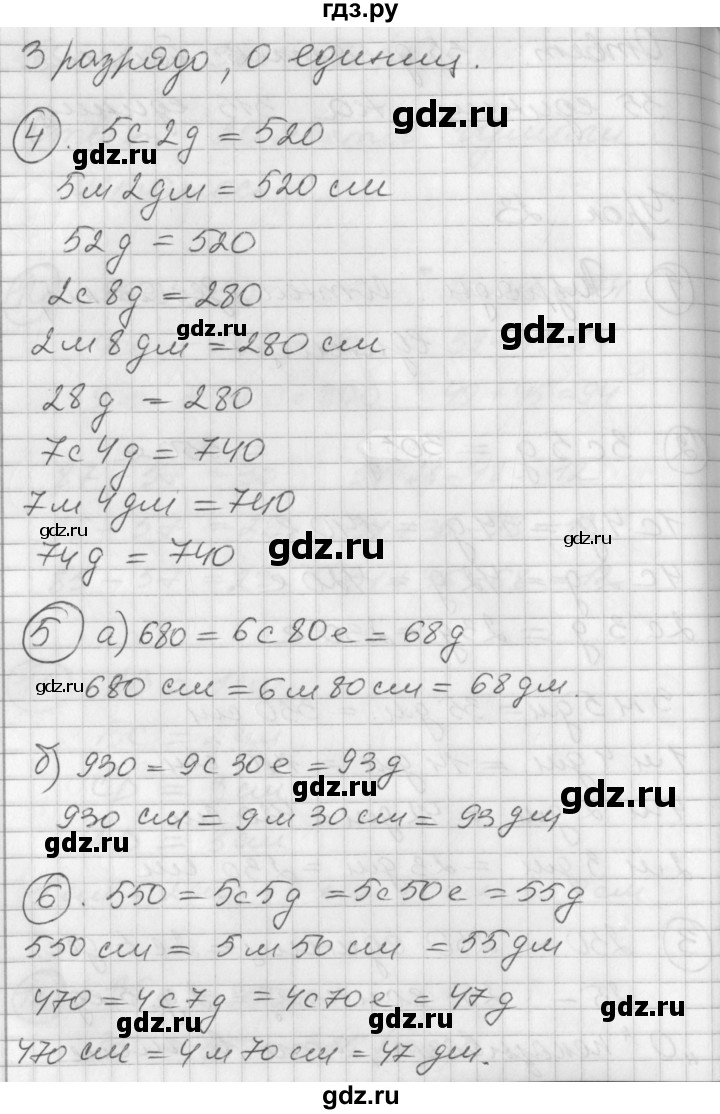 гдз.ру
3 разрядо, 0 единиц.
gdz.ru
4. 5с2д = 520
gdz.ru
5м2дм = 520 см
52д = 520
2с8д = 280
gdz.ru
2м8дм = 280 см
gdz.ru
28д = 280
7с4д = 740
7м4дм = 740
gdz.ru
74д = 740
gdz.ru
gdz.ru
5 а) 680 = 6с80е = 68д
gdz.ru
680 см = 6м80см = 68дм.
б) 930 = 9с30е = 93д
gdz.ru
gdz.ru
930 см = 9м30см = 93дм
gdz.ru
6. 550 = 5с5д = 5с50е = 55д
550см = 5м50см = 55дм
470 = 4с7д = 4с70е = 47д
gdz.ru
gdz.ru
gdz.ru
470см = 4м70см = 47дм.
gdz.ru